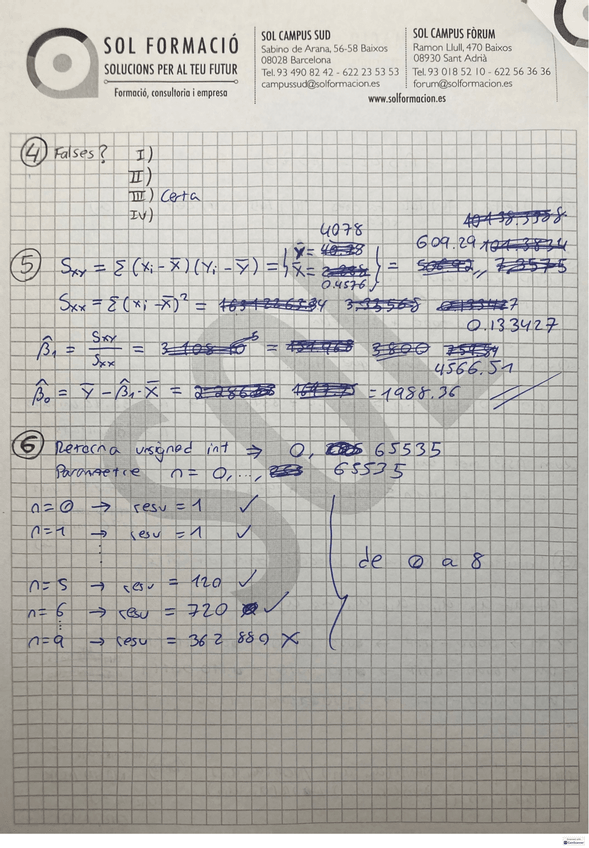 SOL FORMACIÓ
SOLUCIONS PER AL TEU FUTUR
Formació, consultoria i empresa
SOL CAMPUS SUD
Sabino de Arana, 56-58 Baixos
08028 Barcelona
Tel. 93 490 82 42 - 622 23 53 53
campussud@solformacion.es
SOL CAMPUS FÒRUM
Ramon Llull, 470 Baixos
08930 Sant Adrià
Tel. 93 018 52 10 - 622 56 36 36
forum@solformacion.es
www.solformacion.es
4 Falses? I)
II)
III) Certa
IV)
4078
5 Sxy = Σ (xi - x̄)(Yi - Ȳ) = { 0.4576 } = 609.29
Sxx = Σ (xi - x̄)² =
0.133427
β̂1 = Sxy/Sxx = = 4566.51
β̂0 = Ȳ - β̂1·x̄ = = 1988.36
6 Retorna unsigned int ⇒ 0, 65535
Parametre n = 0, ..., 65535
n = 0 → resu = 1 ✓
n = 1 → resu = 1 ✓
⋮
n = 5 → resu = 120 ✓
n = 6 → resu = 720 ✓
⋮
n = 9 → resu = 362 880 X
de 0 a 8
SOL